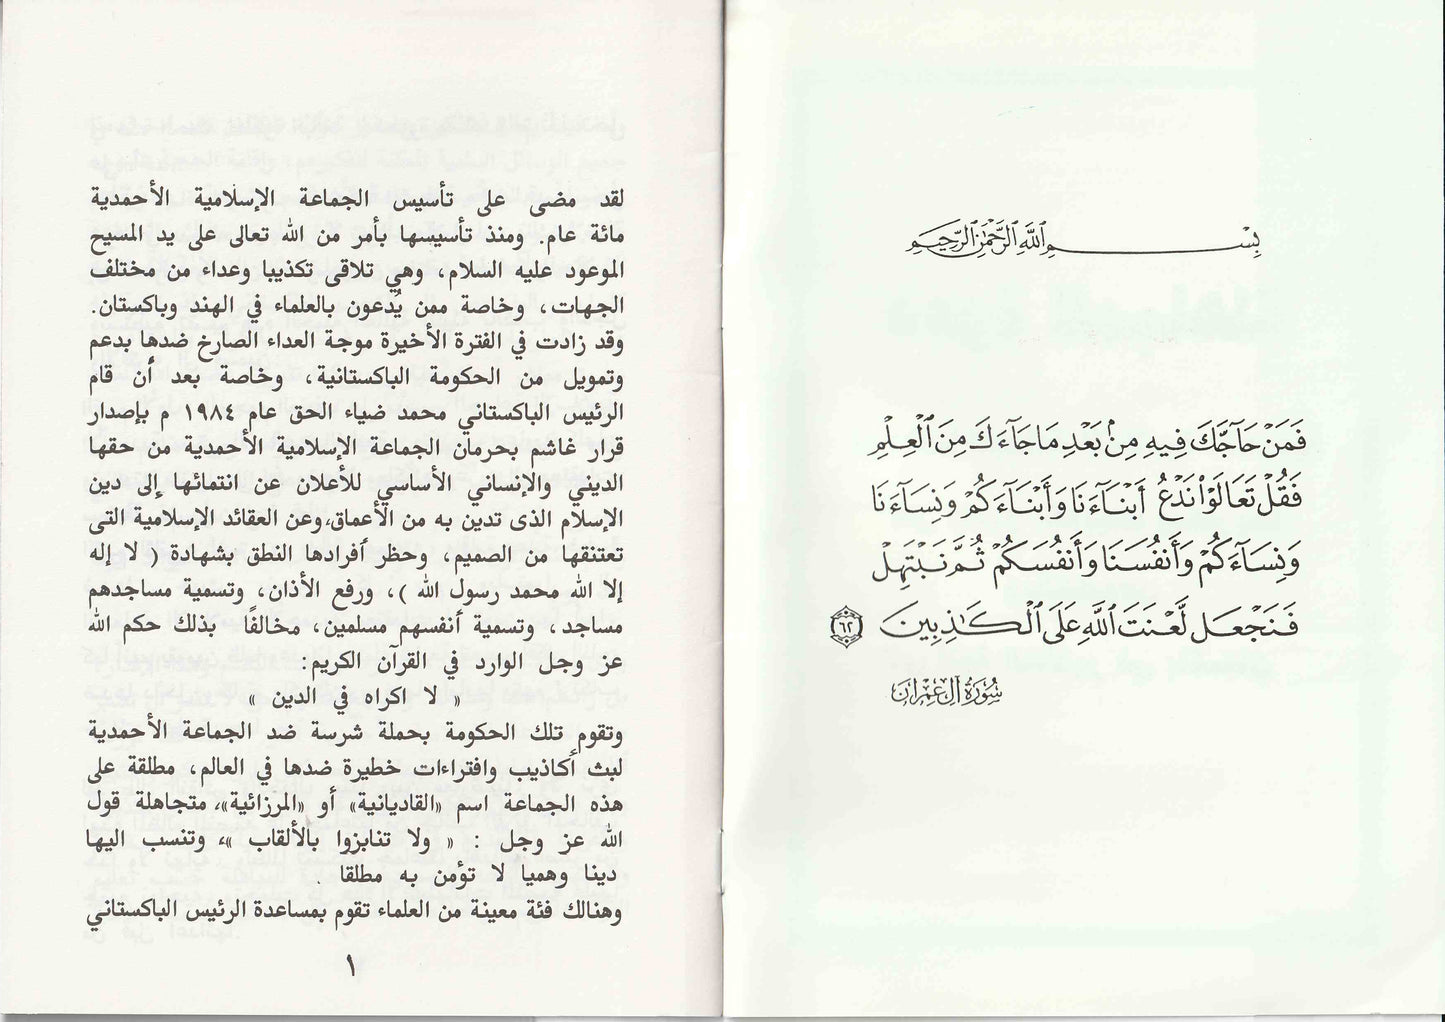 بِسْمِ ٱللَّهِ ٱلرَّحْمَٰنِ ٱلرَّحِيمِ
فَمَنْ حَآجَّكَ فِيهِ مِنۢ بَعْدِ مَا جَآءَكَ مِنَ ٱلْعِلْمِ
فَقُلْ تَعَالَوْا۟ نَدْعُ أَبْنَآءَنَا وَأَبْنَآءَكُمْ وَنِسَآءَنَا
وَنِسَآءَكُمْ وَأَنفُسَنَا وَأَنفُسَكُمْ ثُمَّ نَبْتَهِلْ
فَنَجْعَل لَّعْنَتَ ٱللَّهِ عَلَى ٱلْكَٰذِبِينَ ٦٢
سُورَةُ آلِ عِمْرَان
لقد مضى على تأسيس الجماعة الإسلامية الأحمدية
مائة عام. ومنذ تأسيسها بأمر من الله تعالى على يد المسيح
الموعود عليه السلام، وهي تلاقى تكذيبا وعداء من مختلف
الجهات، وخاصة ممن يُدعون بالعلماء في الهند وباكستان.
وقد زادت في الفترة الأخيرة موجة العداء الصارخ ضدها بدعم
وتمويل من الحكومة الباكستانية، وخاصة بعد أن قام
الرئيس الباكستاني محمد ضياء الحق عام ١٩٨٤ م بإصدار
قرار غاشم بحرمان الجماعة الإسلامية الأحمدية من حقها
الديني والإنساني الأساسي للأعلان عن انتمائها إلى دين
الإسلام الذى تدين به من الأعماق، وعن العقائد الإسلامية التى
تعتنقها من الصميم، وحظر أفرادها النطق بشهادة ( لا إله
إلا الله محمد رسول الله )، ورفع الأذان، وتسمية مساجدهم
مساجد، وتسمية أنفسهم مسلمين، مخالفًا بذلك حكم الله
عز وجل الوارد في القرآن الكريم:
« لا اكراه في الدين »
وتقوم تلك الحكومة بحملة شرسة ضد الجماعة الأحمدية
لبث أكاذيب وافتراءات خطيرة ضدها في العالم، مطلقة على
هذه الجماعة اسم «القاديانية» أو «المرزائية»، متجاهلة قول
الله عز وجل : « ولا تنابزوا بالألقاب »، وتنسب اليها
دينا وهميا لا تؤمن به مطلقا .
وهنالك فئة معينة من العلماء تقوم بمساعدة الرئيس الباكستاني
١